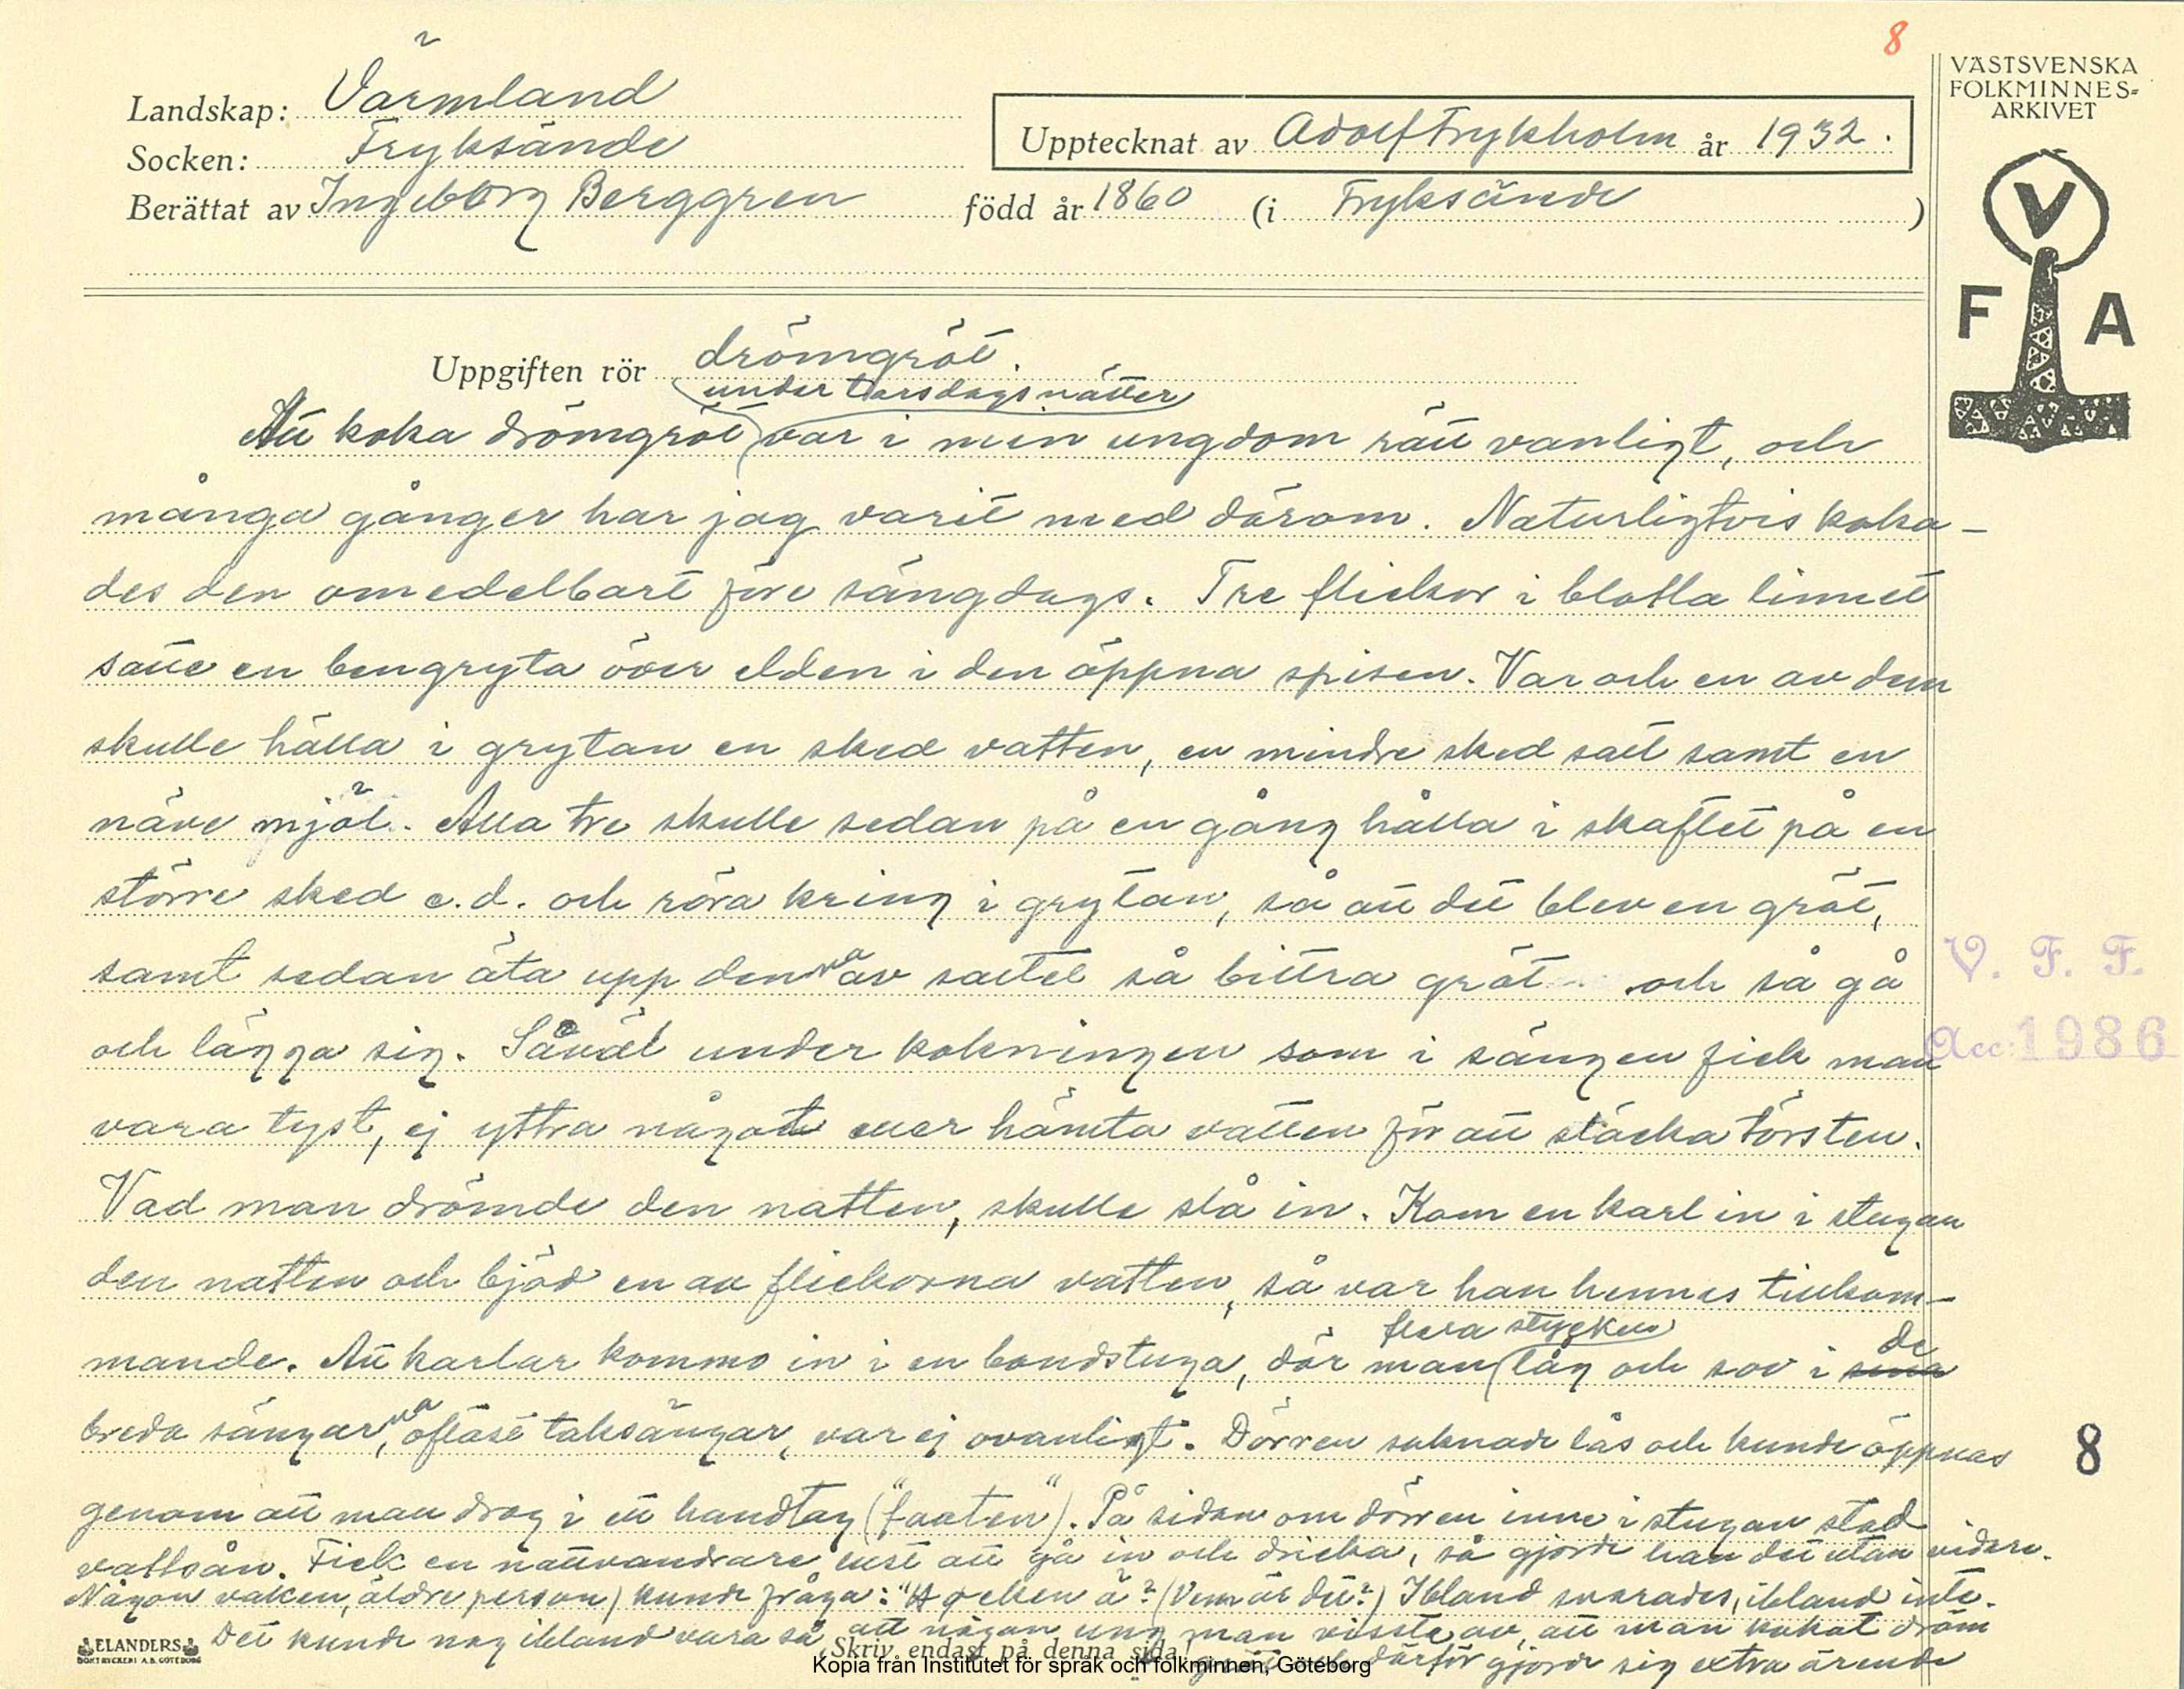 8
VÄSTSVENSKA
FOLKMINNES-
ARKIVET
Landskap: Värmland
Socken: Fryksände
Upptecknat av Adolf Frykholm år 1932.
Berättat av Ingeborg Berggren född år 1860 (i Fryksände)
V
F A
Uppgiften rör drömgröt.
under torsdagsnätter
Att koka drömgröt var i min ungdom rätt vanligt, och
många gånger har jag varit med därom. Naturligtvis koka-
des den omedelbart före sängdags. Tre flickor i blotta linnet
satte en bengryta över elden i den öppna spisen. Var och en av dem
skulle hälla i grytan en sked vatten, en mindre sked salt samt en
näve mjöl. Alla tre skulle sedan på en gång hålla i skaftet på en
större sked e.d. och röra kring i grytan, så att det blev en gröt,
samt sedan äta upp denna av saltet så bittra gröt och så gå
och lägga sig. Såväl under kokningen som i sängen fick man
vara tyst, ej yttra något eller hämta vatten för att släcka törsten.
Vad man drömde den natten, skulle slå in. Kom en karl in i stugan
den natten och bjöd en av flickorna vatten, så var han hennes tillkom-
mande. Att karlar kommo in i en bondstuga, där man låg och sov i sina
flera stycken
de
breda sängar, oftast taksängar, var ej ovanligt. Dörren saknade lås och kunde öppnas
genom att man drog i ett handtag ("faaten"). På sidan om dörren inne i stugan stod
vattsån. Fick en nattvandrare lust att gå in och dricka, så gjorde han det utan vidare.
Någon vaken, äldre person) kunde fråga: "Hocken ä? (Vem är det?) Ibland svarades, ibland inte.
Det kunde nog ibland vara så, att någon ung man visste av, att man kokat dröm
därför gjorde sig extra ärende
V. F. F.
Acc: 1986
8
ELANDERS
BOKTRYCKERI A.B. GÖTEBORG
Skriv endast på denna sida!
Kopia från Institutet för språk och folkminnen, Göteborg